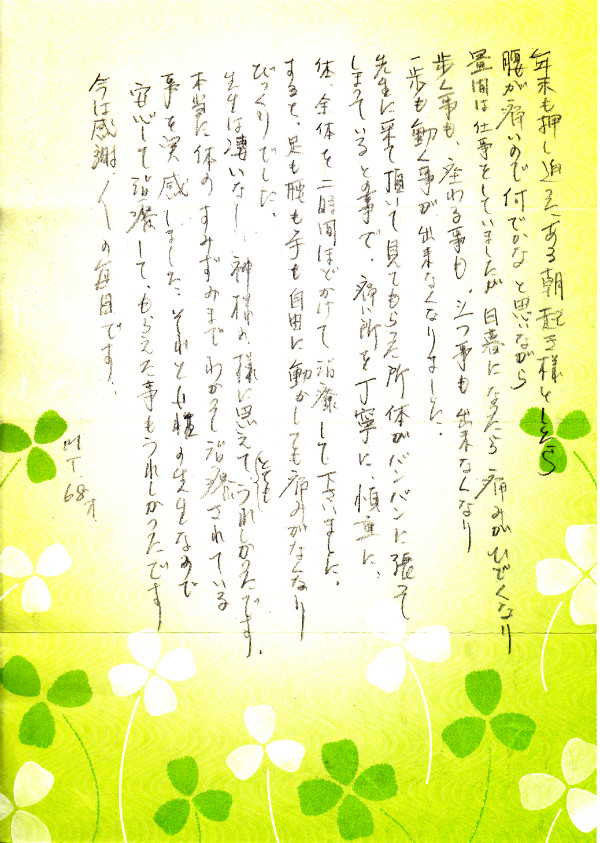 年末も押し迫ったある朝起き様としたら
腰が痛いので何でかなと思いながら
昼間は仕事をしていましたが日暮になったら痛みがひどくなり
歩く事も、座わる事も、立つ事も出来なくなり
一歩も動く事が出来なくなりました。
先生に来て頂いて見てもらった所体がパンパンに張って
しまっているとの事で、痛い所を丁寧に、慎重に、
体、全体を二時間ほどかけて治療して下さいました。
すると、足も腰も手も自由に動かしても痛みがなくなり
びっくりでした。
先生は凄いなし、神様の様に思えてとてもうれしかったです。
本当に体のすみずみまでわかって治療されている
事を実感しました。それと女性の先生なので
安心して治療して、もらえた事もうれしかったです
今は感謝、々の毎日です。
M T 68才